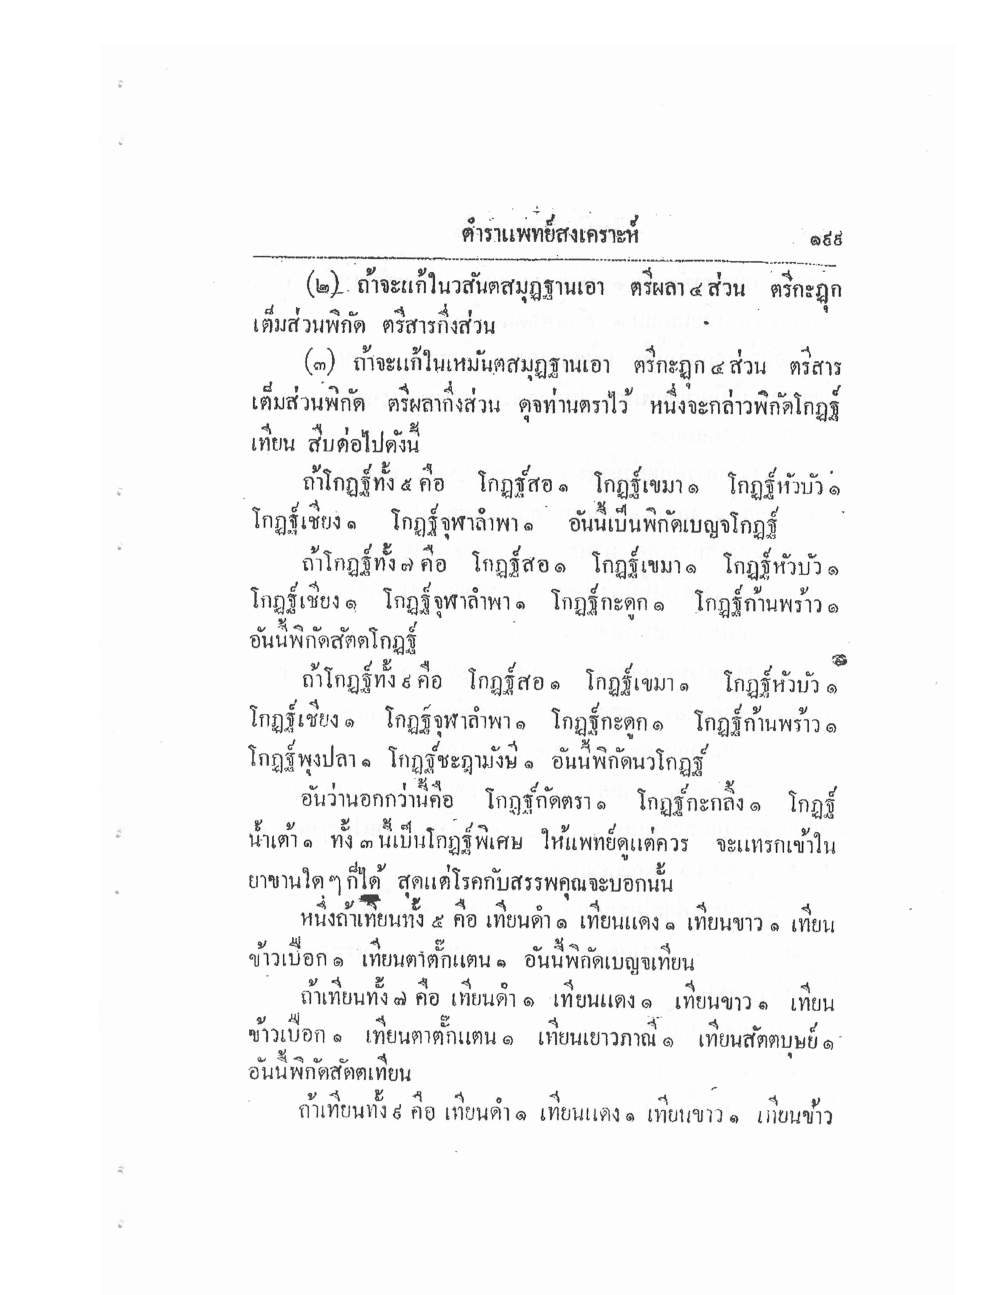 ตำราแพทย์สงเคราะห์ ๑๙๙
(๒) ถ้าจะแก้ในวสันตสมุฏฐานเอา ตรีผลา ๔ ส่วน ตรีกะฏุก
เต็มส่วนพิกัด ตรีสารกึ่งส่วน
(๓) ถ้าจะแก้ในเหมันตสมุฏฐานเอา ตรีกะฏุก ๔ ส่วน ตรีสาร
เต็มส่วนพิกัด ตรีผลากึ่งส่วน ดุจท่านตราไว้ หนึ่งจะกล่าวพิกัดโกฏฐ์
เทียน สืบต่อไปดังนี้
ถ้าโกฏฐ์ทั้ง ๕ คือ โกฏฐ์สอ ๑ โกฏฐ์เขมา ๑ โกฏฐ์หัวบัว ๑
โกฏฐ์เชียง ๑ โกฏฐ์จุฬาลำพา ๑ อันนี้เป็นพิกัดเบญจโกฏฐ์
ถ้าโกฏฐ์ทั้ง ๗ คือ โกฏฐ์สอ ๑ โกฏฐ์เขมา ๑ โกฏฐ์หัวบัว ๑
โกฏฐ์เชียง ๑ โกฏฐ์จุฬาลำพา ๑ โกฏฐ์กะดูก ๑ โกฏฐ์ก้านพร้าว ๑
อันนี้พิกัดสัตตโกฏฐ์
ถ้าโกฏฐ์ทั้ง ๙ คือ โกฏฐ์สอ ๑ โกฏฐ์เขมา ๑ โกฏฐ์หัวบัว ๑
โกฏฐ์เชียง ๑ โกฏฐ์จุฬาลำพา ๑ โกฏฐ์กะดูก ๑ โกฏฐ์ก้านพร้าว ๑
โกฏฐ์พุงปลา ๑ โกฏฐ์ชะฎามังษี ๑ อันนี้พิกัดนวโกฏฐ์
อันว่านอกกว่านี้คือ โกฏฐ์กัดตรา ๑ โกฏฐ์กะกลิ้ง ๑ โกฏฐ์
น้ำเต้า ๑ ทั้ง ๓ นี้เป็นโกฏฐ์พิเศษ ให้แพทย์ดูแต่ควร จะแทรกเข้าใน
ยาขานใด ๆ ก็ได้ สุดแต่โรคกับสรรพคุณจะบอกนั้น
หนึ่งถ้าเทียนทั้ง ๕ คือ เทียนดำ ๑ เทียนแดง ๑ เทียนขาว ๑ เทียน
ข้าวเปือก ๑ เทียนตาตั๊กแตน ๑ อันนี้พิกัดเบญจเทียน
ถ้าเทียนทั้ง ๗ คือ เทียนดำ ๑ เทียนแดง ๑ เทียนขาว ๑ เทียน
ข้าวเปือก ๑ เทียนตาตั๊กแตน ๑ เทียนเยาวภาณี ๑ เทียนสัตตบุษย์ ๑
อันนี้พิกัดสัตตเทียน
ถ้าเทียนทั้ง ๙ คือ เทียนดำ ๑ เทียนแดง ๑ เทียนขาว ๑ เทียนข้าว